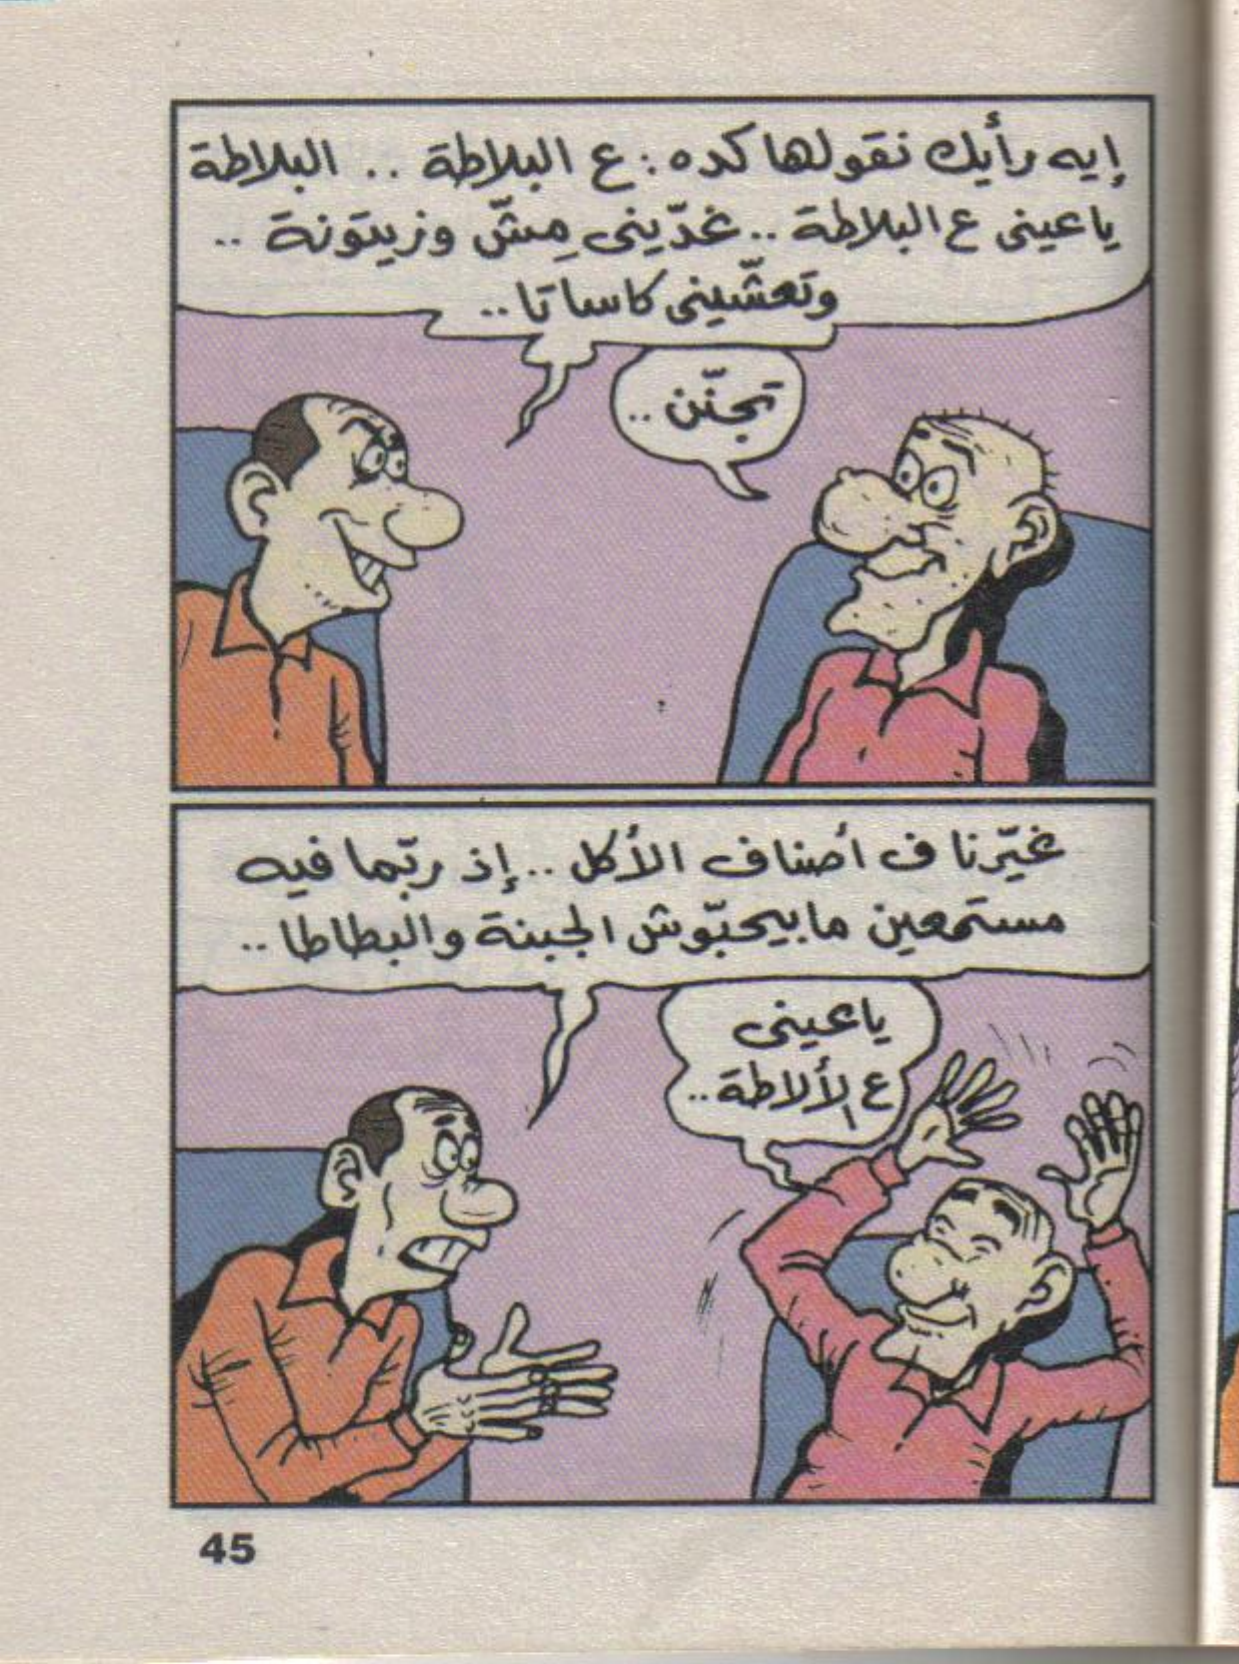 إيه رأيك نقولها كده : ع البلاطة .. البلاطة
ياعينى ع البلاطة .. غدّينى مِشّ وزيتونة ..
وتعشّينى كاساتا ..
تجنّن ..
غيّرنا ف أصناف الأكل .. إذ ربّما فيه
مستمعين مابيحبّوش الجبنة والبطاطا ..
ياعينى
ع الألاطة ..
45